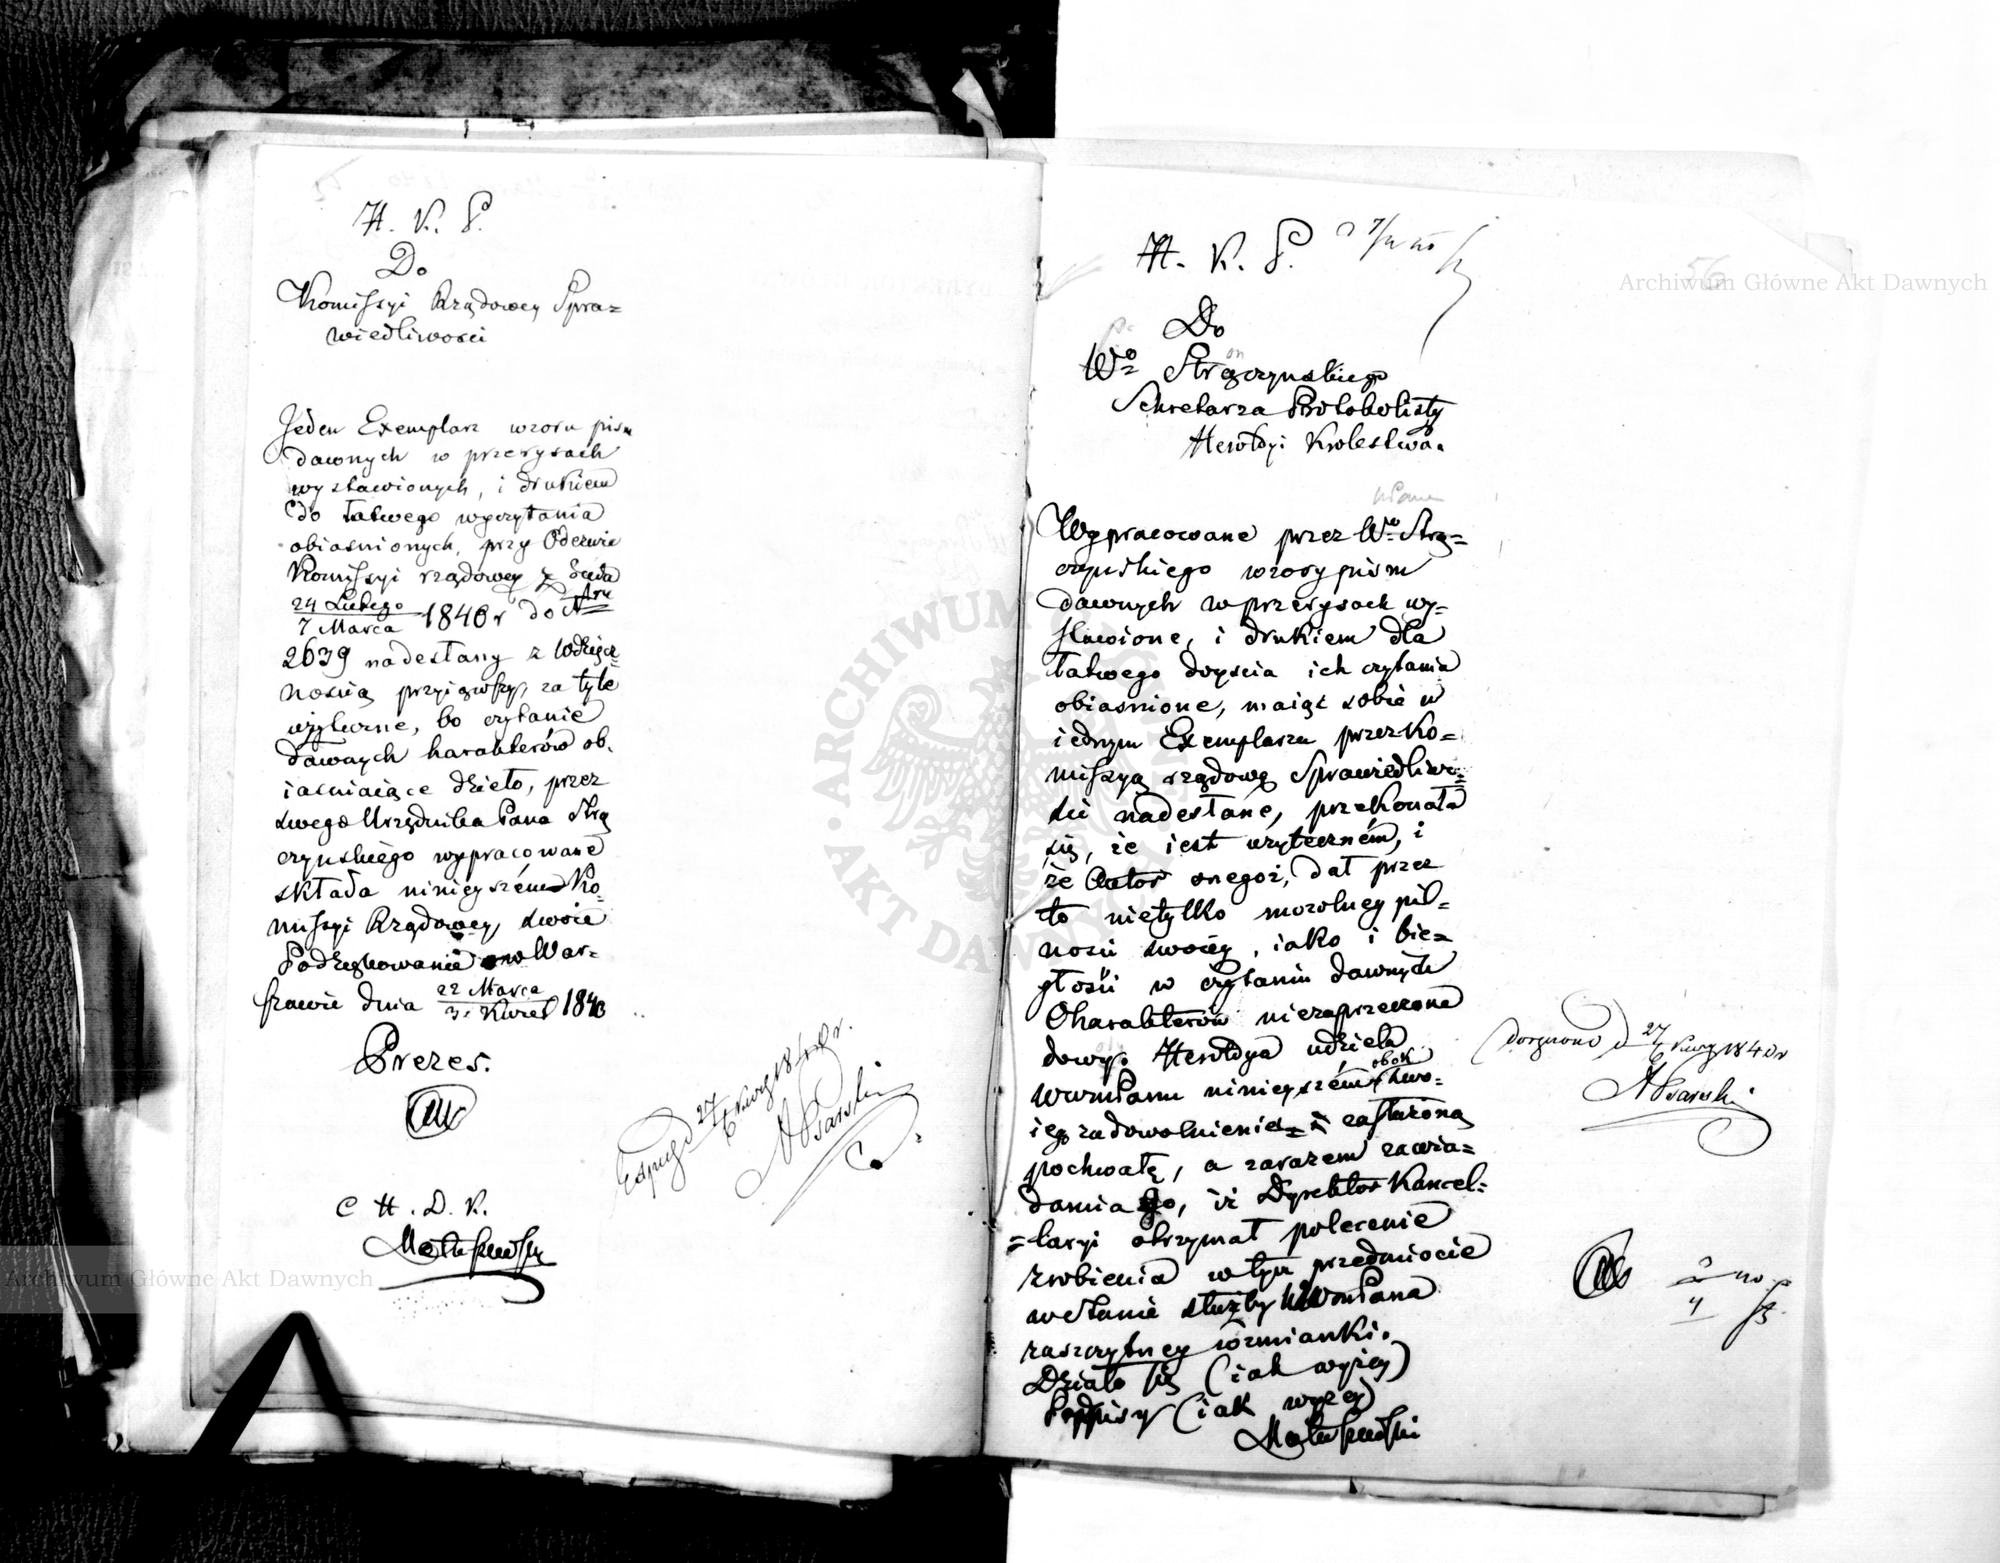 H. K. P.
Do
Komissyi Rządowey Spra=
wiedliwosci
Jeden Exemplarz wzoru pism
dawnych w przerysach
wystawionych, i drukiem
do łatwego wyczytania
obiasnionych, przy Odezwie
Komissyi rządowey z Dnia
24 Lutego
7 Marca 1840 r do Nru
2639 nadesłany z Wdzięcz=
nością przyiąwszy, za tyle
użyteczne, bo czytanie
dawnych harakterów ob-
iasniaiące dzieło, przez
swego Urzędnika Pana Strą
czynskiego wypracowane
składa ninieyszém Ko=
missyi Rządowey, swoie
Podziękowanie w War=
szawie dnia 22 Marca
3 Kwiet 1840
Prezes.
C H. D. K.
Matuszewski
Exped 27/6 Kwiet 1840 r.
A Psarski
H. K. P.
Do
Wo Strączynskiego
Sekretarza Protokolisty
Herołdyi Krolestwa.
Wypracowane przez Wo Strą=
czynskiego wzory pism
dawnych w przerysach wy=
stawione, i drukiem dla
łatwego doyscia ich czytania
obiasnione, maiąc sobie w
iednym Exemplarzu przez Ko=
missyą rządową Sprawiedliwo=
sci nadesłane, przekonała
się, że iest użyteczném, i
że Autor onegoż, dał przez
to nietylko mozolney pil=
nosci swoiéy, iako i bie=
głości w czytaniu dawnych
Charakterów niezaprzeczone
dowody. Herołdya udziela
WWmPanu ninieyszém obok swo=
iego zadowolnienia zasłużoną
pochwałę, a zarazem zawia=
damia Go, iż Dyrektor Kancel=
=laryi otrzymał polecenie
zrobienia w tym przedmiocie
w stanie służby WWmPana
zaszczytney wzmianki.
Działo się (iak wyżey)
Podpisy (iak wyżey)
Matuszewski
Doręczono d 27/6 Kwiet 1840 r
A Psarski
56
Archiwum Główne Akt Dawnych
Archiwum Główne Akt Dawnych
ARCHIWUM GŁÓWNE AKT DAWNYCH